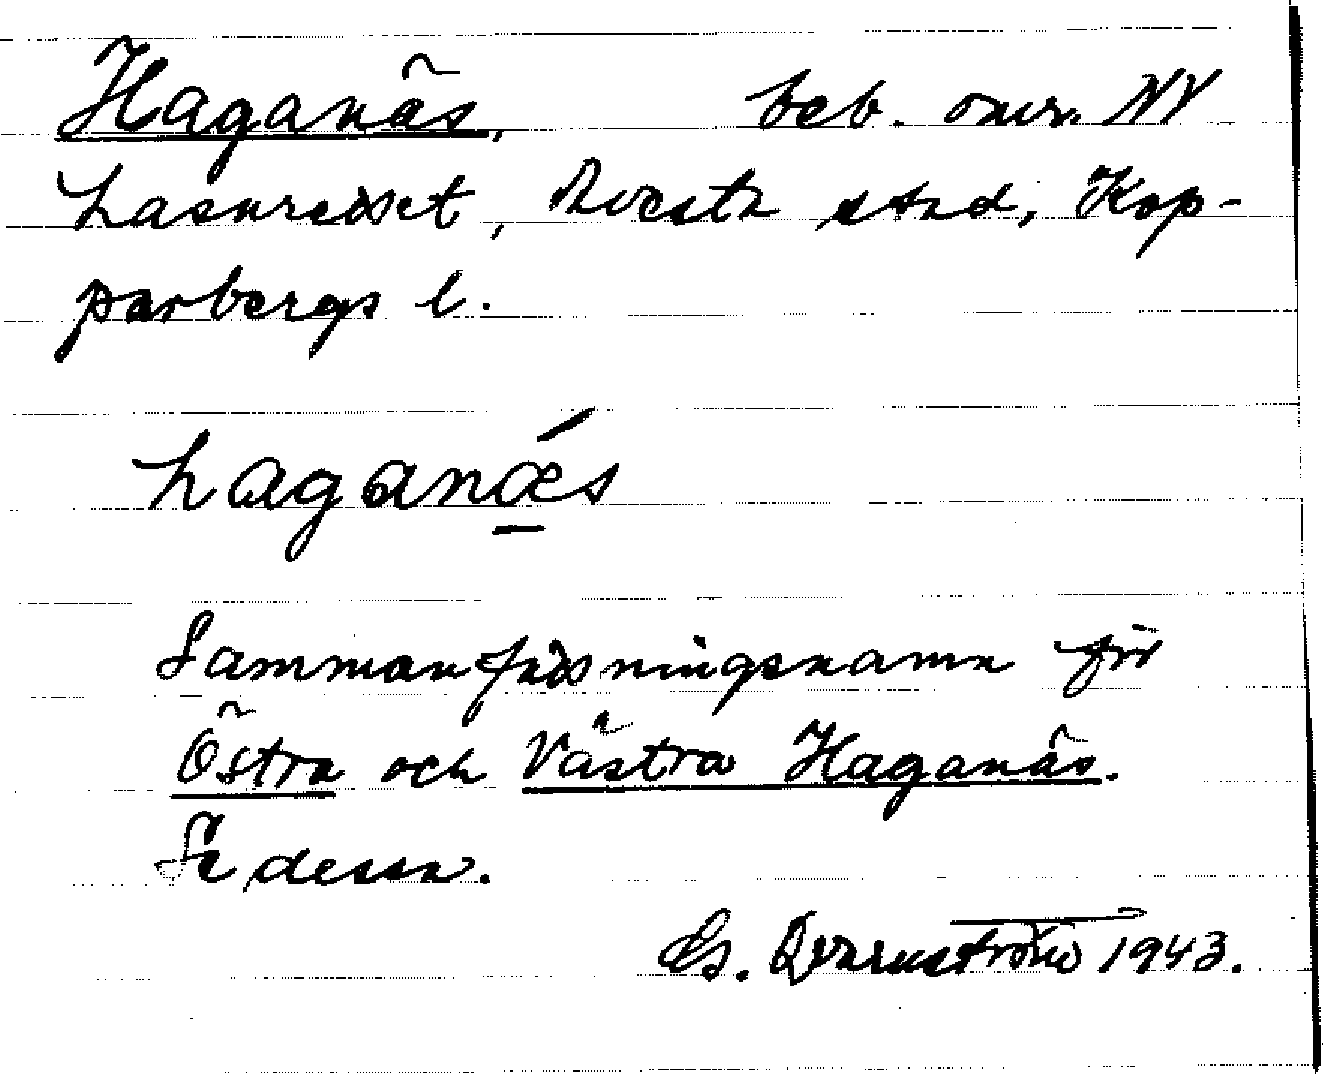 Haganäs, beb. omr. NV
hasbredset, Avesta stad, Kop-
parbergs l.
haganǽs
Sammanfattningsnamn för
Östra och Västra Haganäs.
Se dessa.
G. Qvarnström 1943.